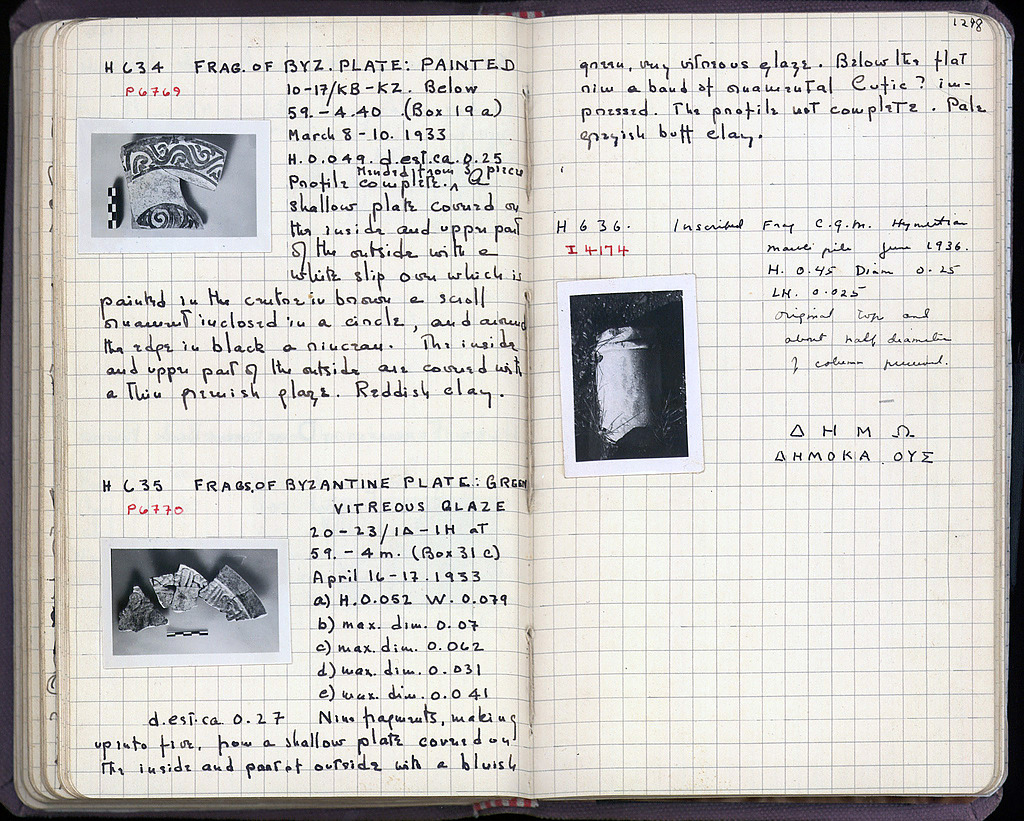 H 634 FRAG. OF BYZ. PLATE: PAINTED
P6769
10-17/KB-KZ. Below
59.-4.40 (Box 19 a)
March 8-10. 1933
H. 0.049. d.est.ca. 0.25
Profile complete. Mended from 3 pieces A
shallow plate covered on
the inside and upper part
of the outside with a
white slip over which is
painted in the center in brown a scroll
ornament inclosed in a circle, and around
the edge in black a rinceau. The inside
and upper part of the outside are covered with
a thin greenish glaze. Reddish clay.
H 635 FRAGS. OF BYZANTINE PLATE: GREEN
P6770
VITREOUS GLAZE
20-23/IΔ-IH at
59.-4m. (Box 31 c)
April 16-17. 1933
a) H. 0.052 W. 0.079
b) max. dim. 0.07
c) max. dim. 0.062
d) max. dim. 0.031
e) max. dim. 0.041
d.est.ca. 0.27 Nine fragments, making
up into five, from a shallow plate covered on
the inside and part of outside with a bluish
1298
green, very vitreous glaze. Below the flat
rim a band of ornamental Cufic? im-
pressed. The profile not complete. Pale
greyish buff clay.
H 636. Inscribed Frag C.G.M. Hymettian
I 4174
marble pile June 1936.
H. 0.45 Diam 0.25
LH. 0.025
Original top and
about half diameter
of column preserved.
Δ Η Μ Ω
ΔΗΜΟΚΑ ΟΥΣ